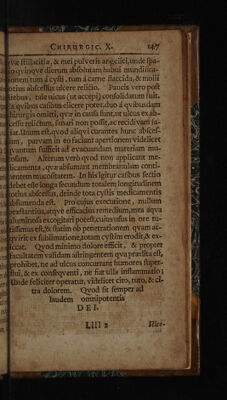 CHIRURGIC. X. 147
quæ stillatitiæ, & mei pulveris angelici, unde spa-
tio quinque dierum absolutam habui mundifica-
tionem tum à cysti, tum à carne flaccida, & molli
totius abscessus ulcere relicto. Paucis vero post
diebus, tale ulcus (ut accepi) consolidatum fuit.
Ex quibus casibus elicere potes, duo à quibusdam
chirurgis omitti, quæ in causa sunt, ut ulcus ex ab-
scessu relictum, sanari non possit, ac recidivam fa-
ciat. Unum est, quod aliqui curantes hunc absces-
sum, parvam in eo faciunt apertionem videlicet
tantum sufficit ad evacuandam materiam
Alterum verò quod non applicant me-
dicamenta, quæ absumant membranulam conti-
nentem mucositatem. In his igitur casibus sectio
debet esse longa secundum totalem longitudinem
totius abscessus, deinde tota cystis medicamentis
absumenda est. Pro cujus executione, nullum
præstantius, atque efficacius remedium, mea aqua
aluminosa excogitari potest, cujus usus in ore tu-
tissimus est, & statim ob penetrationem quam ac-
quirit ex sublimatione, totam cystim erodit, & ex-
siccat. Quod minimo dolore efficit, & propter
facultatem validam astringentem qua prædita est,
prohibet, ne ad ulcus concurrant humores super-
flui, & ex consequenti, ne fiat ulla inflammatio;
Unde feliciter operatur, videlicet cito, tuto, & ci-
tra dolorem. Quod sit semper ad
laudem omnipotentis
DEI.
Llll 2